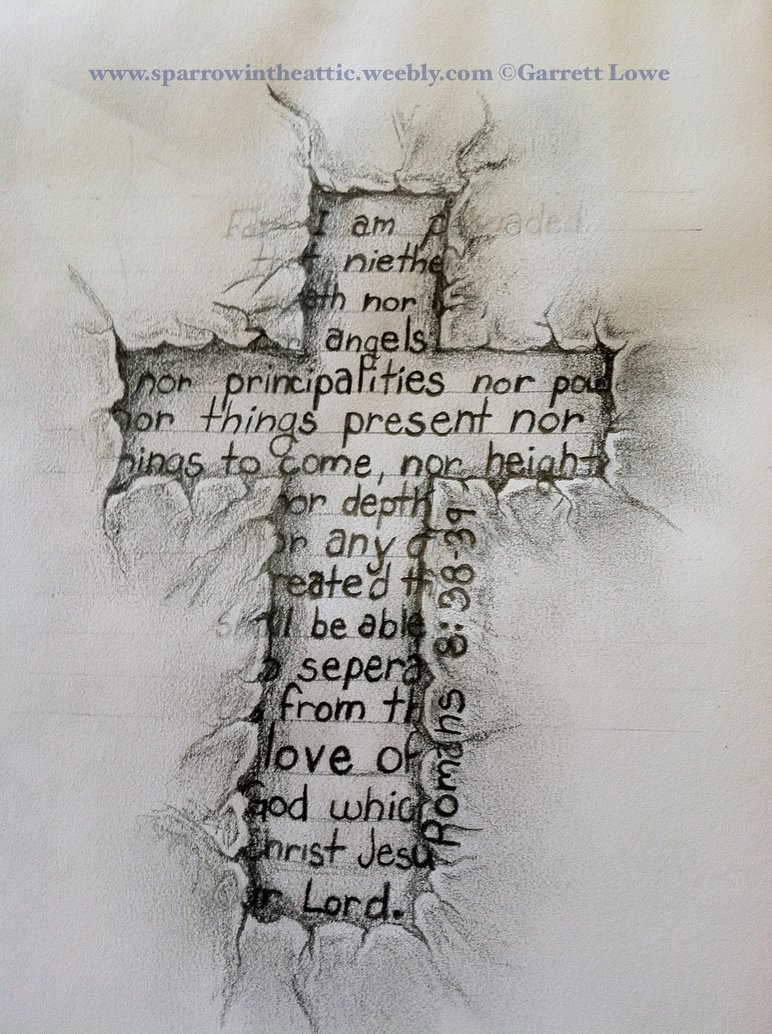 www.sparrowintheattic.weebly.com ©Garrett Lowe
For I am p waded
that niethe
eth nor l
nor angels
nor principalities nor pow
nor things present nor
hings to come, nor height
nor depth
or any o
reated th
shall be able
o sepera
from th
love of
God whic
Christ Jesu
ur Lord.
Romans 8:38-39